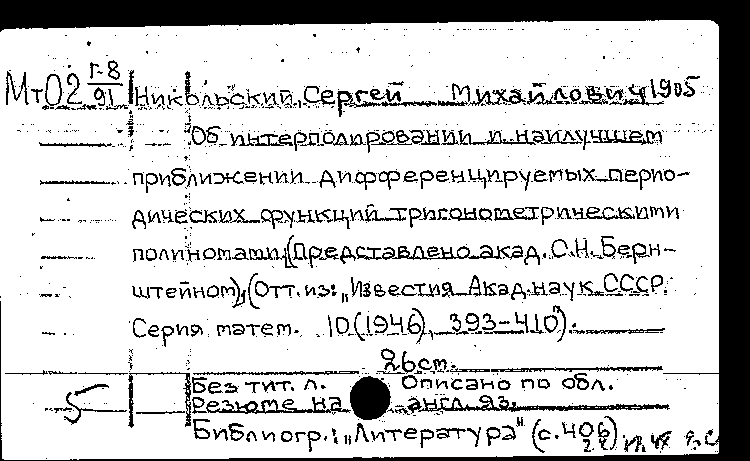 Мт02 г-8/91 Никольский, Сергей Михайлович 1905
Об интерполировании и наилучшем
приближении дифференцируемых перио-
дических функций тригонометрическими
полиномами. (Представлено акад. С.Н. Берн-
штейном), (Отт. из: "Известия Акад. наук СССР.
Серия матем. 10 (1946), 393-410").
26 cm.
Без тит. л. Описано по обл.
5 Резюме на англ. яз.
Библиогр.: "Литература" (с. 406)